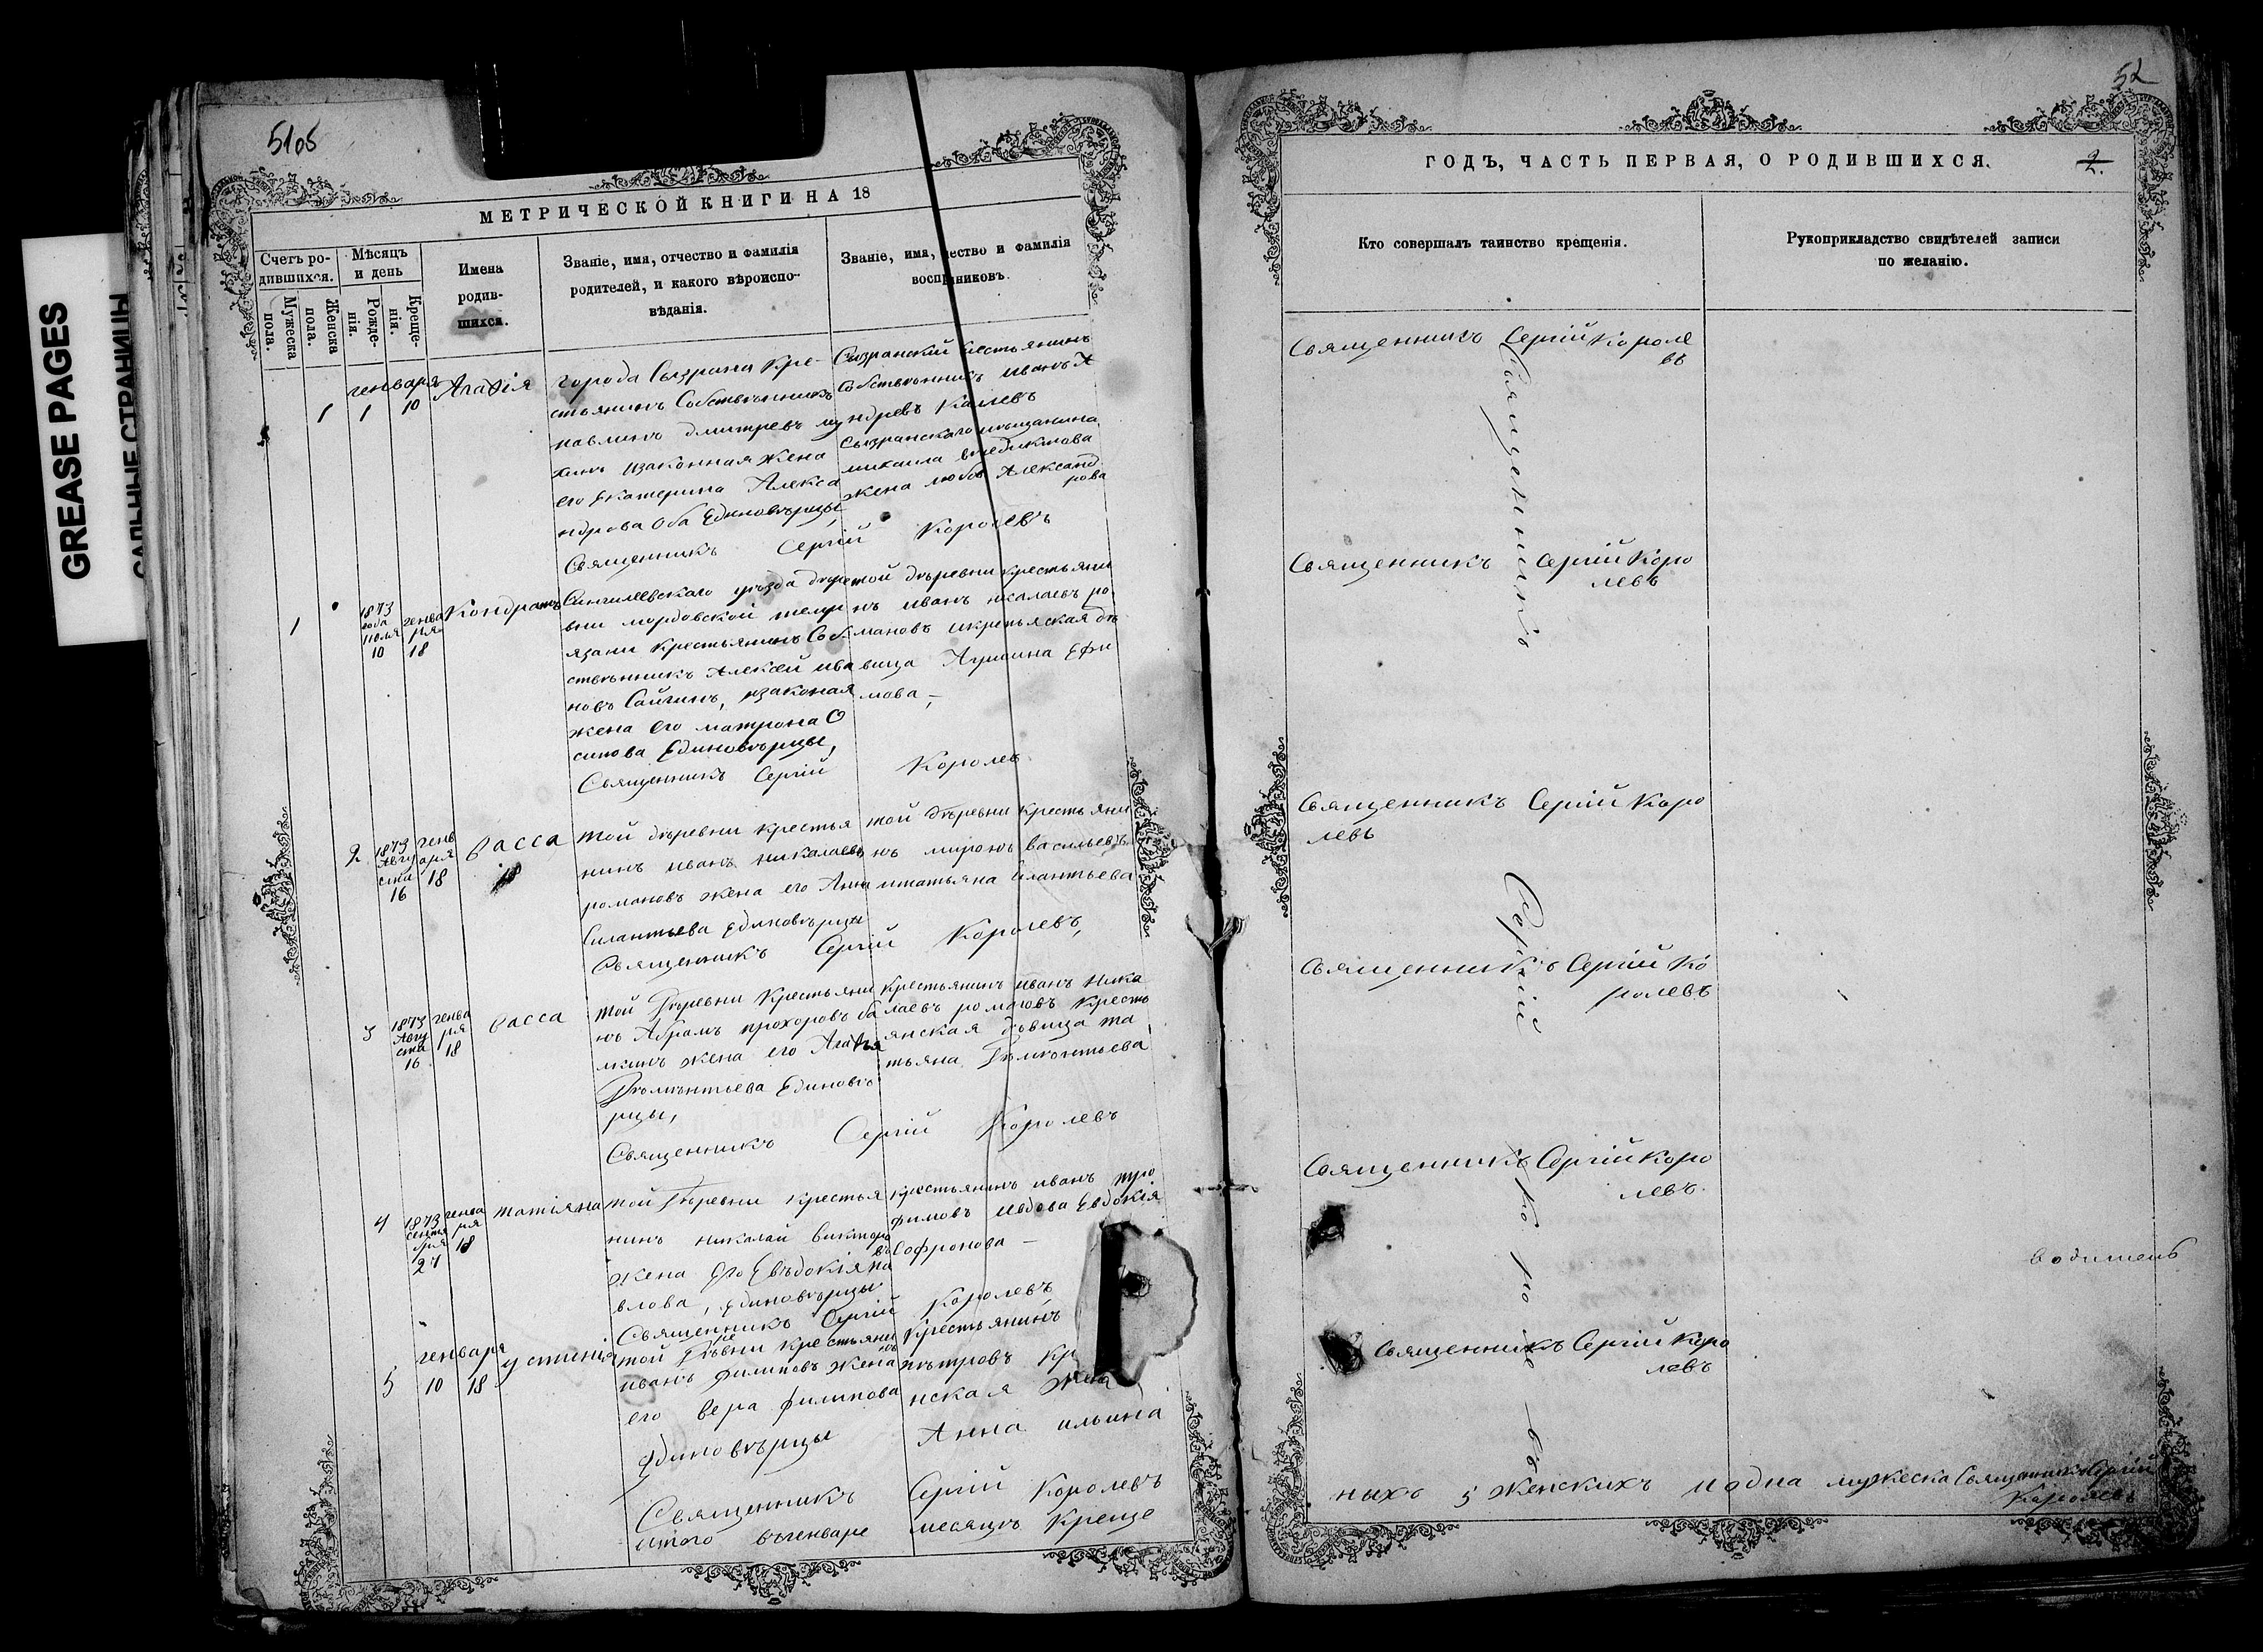 GREASE PAGES
САЛЬНЫЕ СТРАНИЦЫ
51об
МЕТРИЧЕСКОЙ КНИГИ НА 18
Счетъ ро-
дившихся.
Мужеска
пола.
Женска
пола.
Мѣсяцъ
и день
Рожде-
нія.
Креще-
нія.
Имена
родив-
шихся.
Званіе, имя, отчество и фамилія
родителей, и какого вѣроиспо-
вѣданія.
Званіе, имя, чество и фамилія
воспр никовъ.
1
генваря
1 10
Агафія
города Сызрана кре-
стьянинъ Собственникъ
павлинъ дмитревъ
изаконная жена
его Екатерина Алекса
ндрова оба Единовѣрцы
Сызранский крестьянинъ
Собственникъ иванъ А
ндревъ
Сызранскаго мѣщанина
михаила венедиктова
жена любовь Александ
рова
Священникъ Сергій Королевъ
1
1873
года
июля
10
генва
ря
18
Кондратъ
Сингилевскаго уѣзда дере
вни мордовской темр
язани крестьянинъ Соб
ственникъ Алексей ива
новъ Сайгинъ, изаконая
жена его матрона О
сипова Единовѣрцы,
той дѣревни крестьяни
нъ иванъ нкалаевъ ро
мановъ икретьяская дѣ
вица Ефи
мова,-
Священникъ Сергій Королев
2
1873
Авгу
ста
16
генв
аря
18
Васса
той дѣревни крестья
нинъ иванъ никалаевъ
романовъ жена его Анна
Силантьева единовѣрцы
той дѣревни крестьяни
нъ миронъ васильевъ
итатьяна Силантьева
Священникъ Сергій Королевъ,
3
1873
Авгу
ста
16
генва
ря
18
Васса
той Дѣревни Крестьяни
нъ Абрамъ прохоровъ ба
лкинъ жена его Агафья
Дѣмѣнтьева Единовѣ
рцы,
крестьянинъ иванъ Ника
лаевъ романовъ кресть
янская дѣвица та
тьяна Дѣмѣнтьева
Священникъ Сергій Королевъ
4
1873
сентя
бря
27
генва
ря
18
татіяна
той Дѣревни крестья
нинъ николай викторо
въ
жена Его Евъдокія па
влова, единовѣрцы
крестьянинъ иванъ тро
фимовъ ивдова Евдокія
Софронова —
Священникъ Сергій Королевъ
5
генваря
10 18
устинія
той Дѣревни крестьяни
нъ
иванъ филиповъ жена
его вера филипова
единовѣрцы
крестьянинъ
пѣтровъ кр
нская жена
Анна ильина
Священникъ Сергій Королевъ
итого въгенваре месяцъ Креще
52
ГОДЪ, ЧАСТЬ ПЕРВАЯ, О РОДИВШИХСЯ.
2.
Кто совершалъ таинство крещенія.
Рукоприкладство свидѣтелей записи
по желанію.
Священникъ Сергій Короле
въ
Священникъ Сергій Коро
левъ
Священникъ Сергій Коро
левъ
Священникъ Сергій Ко
ролевъ
Священникъ Сергій Коро
левъ.
Священникъ Сергій Коро
левъ
Священникъ
Сергій
Королевъ
водитель
ныхъ 5 женскихъ иодна мужеска Священникъ Сергій
Королевъ